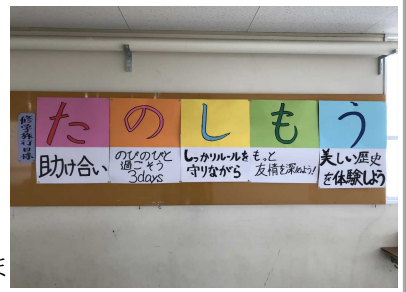 修学旅行目標
たのしもう
助け合い
のびのびと
過ごそう
3days
しっかりルールを
守りながら
もっと
友情を深めよう!
美しい歴史
を体験しよう
ま